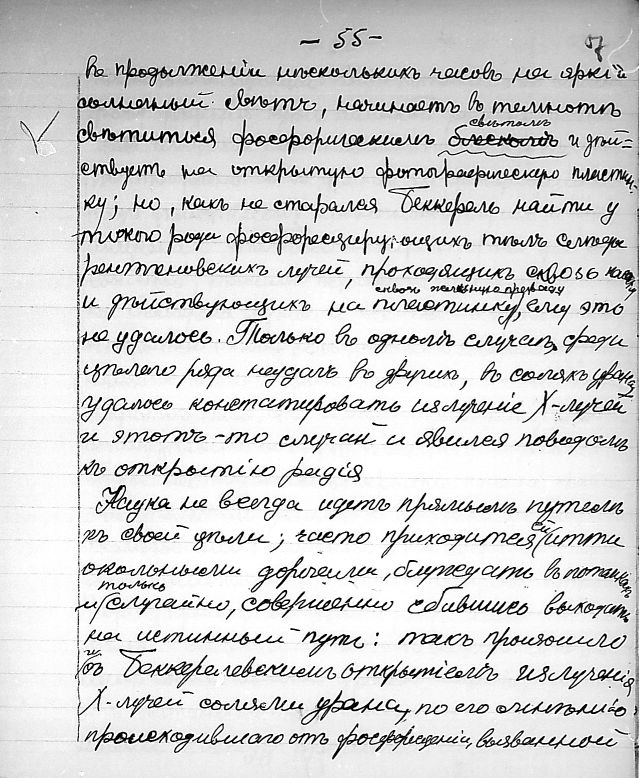 — 55 —
57
въ продолженіи нѣсколькихъ часовъ на яркій
солнечный свѣтъ, начинаетъ въ темнотѣ
свѣтомъ
свѣтиться фосфорическимъ блескомъ и дѣй=
ствуетъ на открытую фотографическую пластин-
ку; но, какъ не старался Беккерель найти у
такого рода фосфоресцирующихъ тѣлъ слѣды
рентгеновскихъ лучей, проходящихъ сквозь
и дѣйствующихъ на пластинку, ему это
не удалось. Только въ одномъ случаѣ, среди
цѣлаго ряда неудачъ въ другихъ, въ соляхъ урана
удалось констатировать излученіе X-лучей
и этотъ-то случай и явился поводомъ
къ открытію радія
Наука не всегда идетъ прямымъ путемъ
къ своей цѣли; часто приходится ей итти
окольными дорогами, блуждать въ потемкахъ
только
и случайно, совершенно сбившись выходить
на истинный путь: такъ произошло
и съ Беккерелевскимъ открытіемъ излученія
X-лучей солями урана, по его мнѣнію
происходившаго отъ фосфоресценціи, вызванной